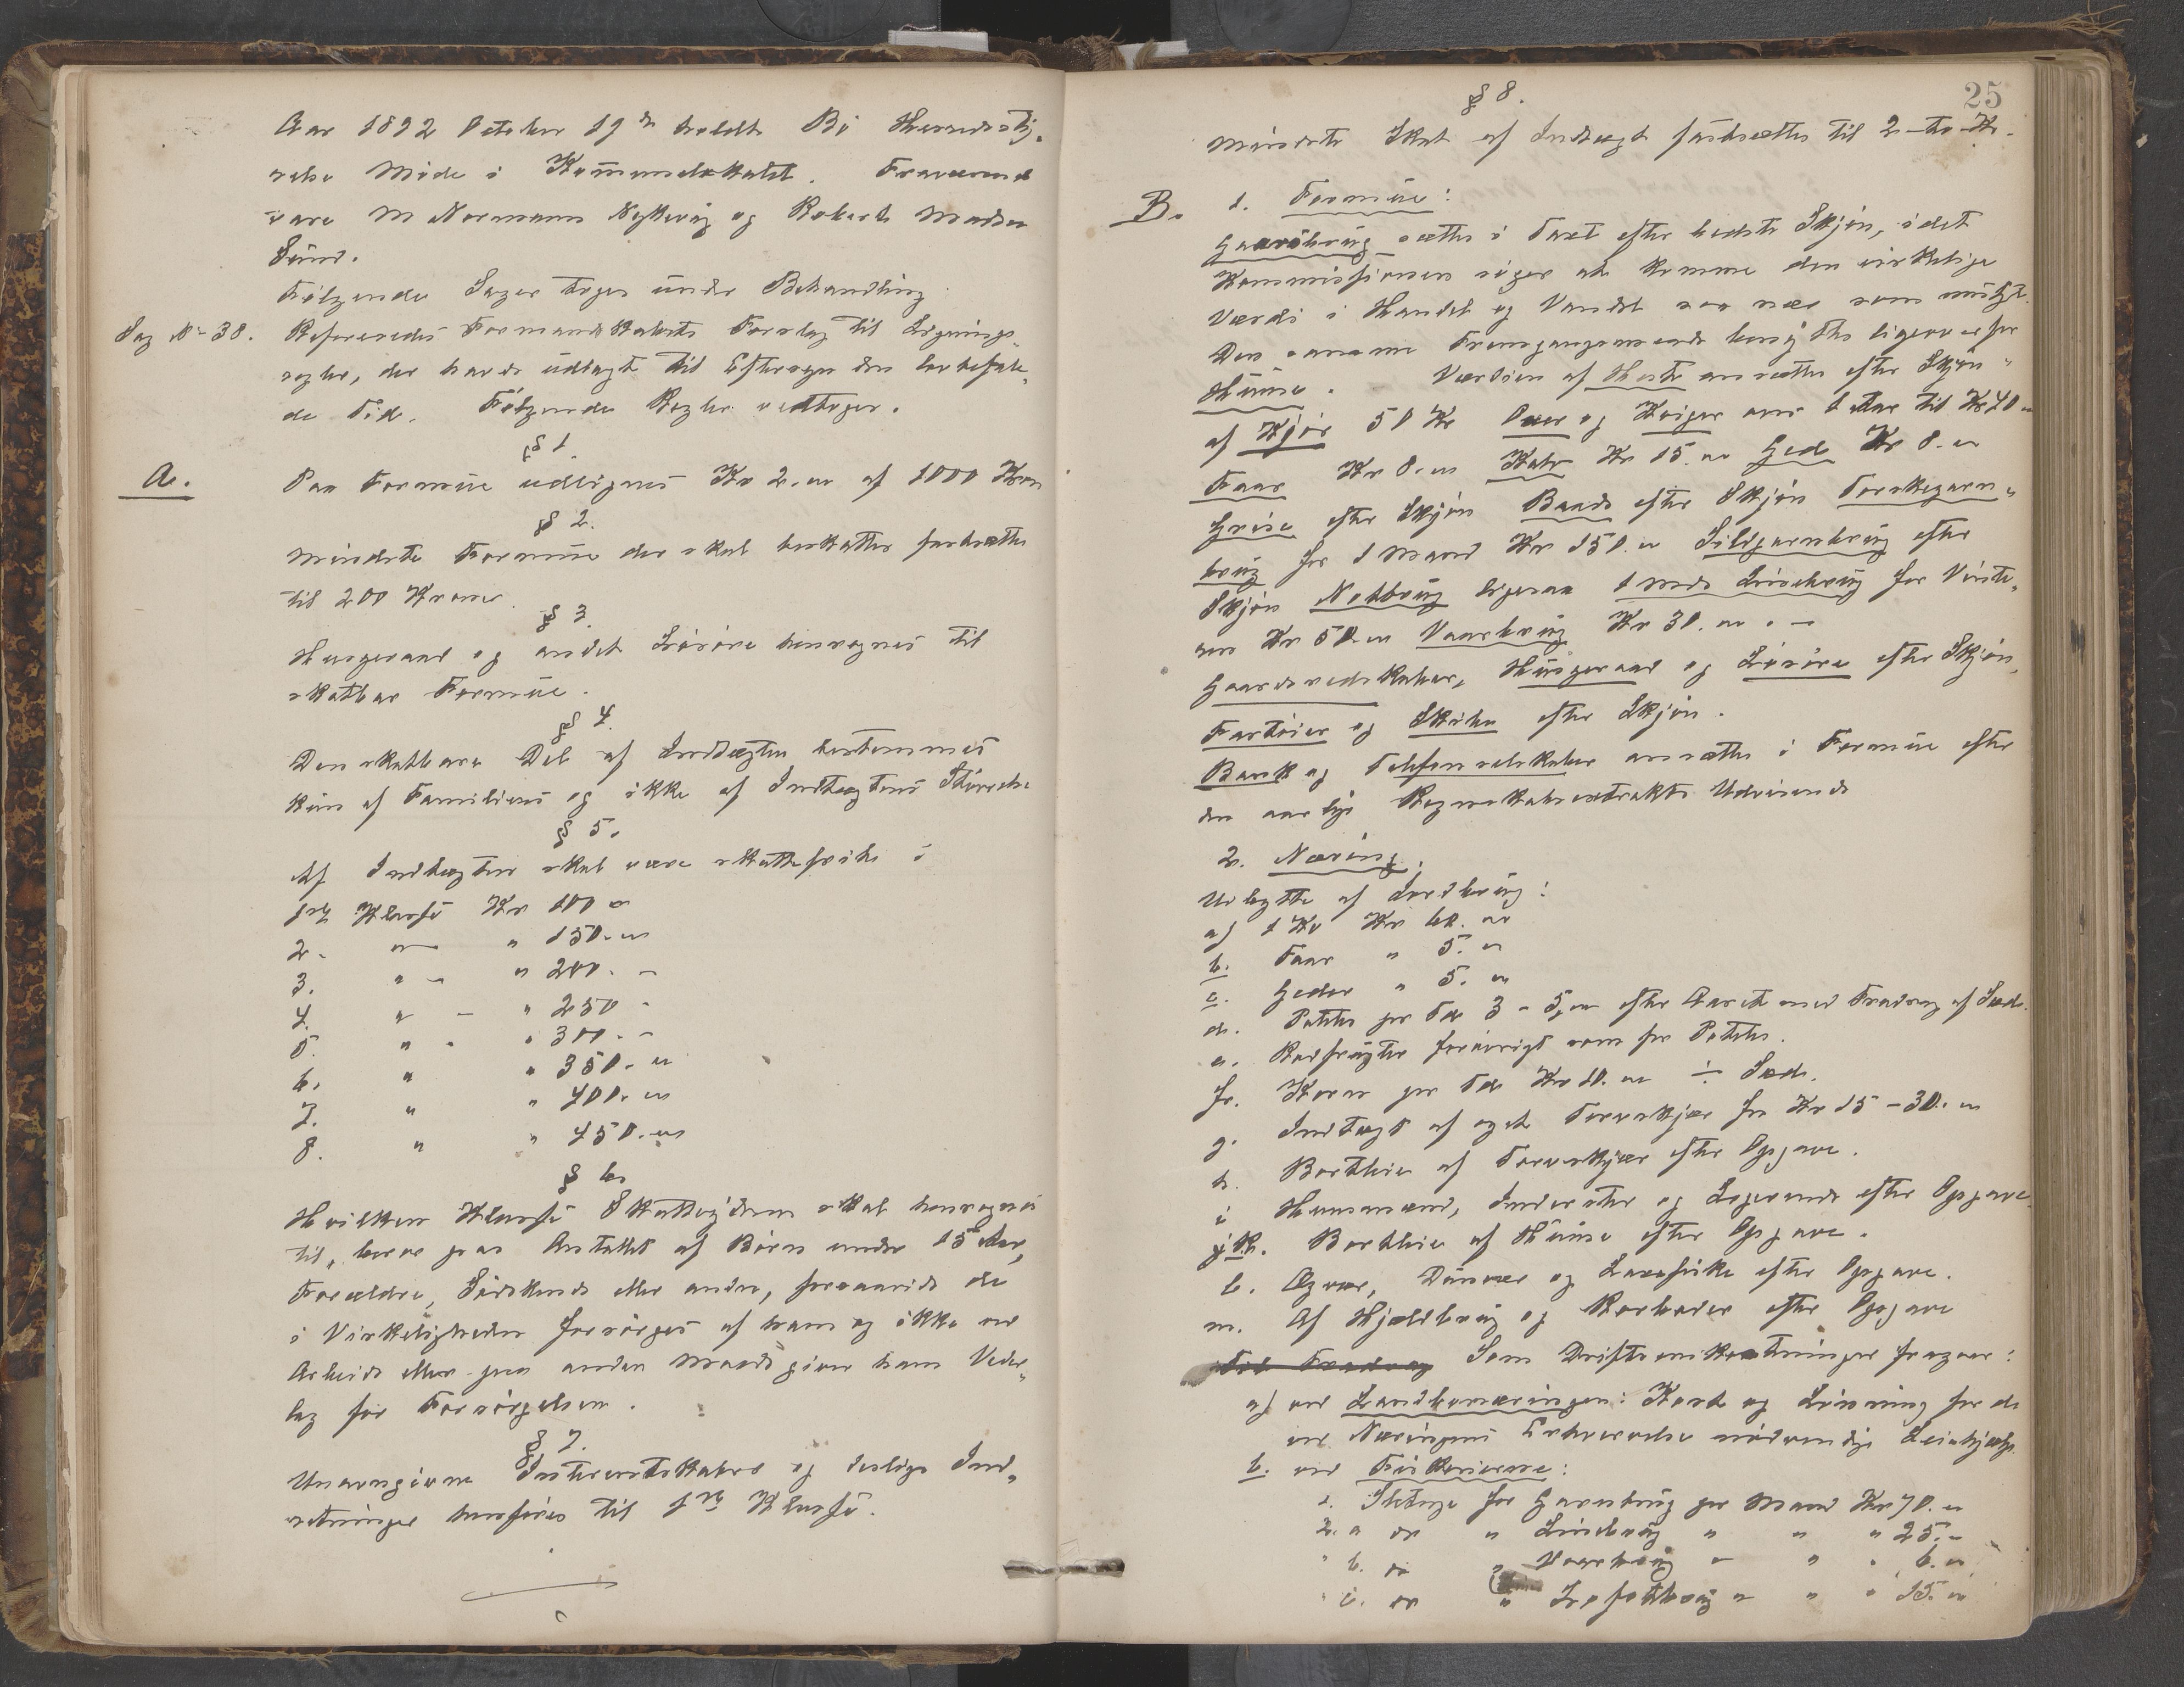 Aar 1892 October 19de holdt Bø Herredssty-
relse Møde i Kommunelokalet. Fraværende
vare M Normann Nykvåg og Robert Madsen
Sund.
Følgende Sager toges under Behandling
Sag No 38. Refereredes Formandskabets Forslag til Lignings-
regler, der havde udlagt til Eftersyn den lovbefale-
de Tid. Følgende Regler vedtoges.
§ 1.
A. Paa Formue udlignes Kr 2.00 af 1000 Kroner
§ 2.
Mindste Formue der skal beskattes fastsættes
til 200 Kroner.
§ 3.
Husgeraad og andet Løsøre henregnes til
skatbar Formue.
§ 4.
Den skatbare Del af Indtægten bestemmes
kun af Familiens og ikke af Indtægtens Størrelse
§ 5.
Af Indtægten skal være skattefrihe i
1ste Klasse Kr 100 "
2. " - " 150. "
3. " - " 200. -
4. " - " 250 -
5. " - " 300. -
6. " " 350. "
7. " " 400. "
8. " " 450. "
§ 6
Hvilken Klasse Skatteyderen skal henregnes
til, beror paa Antallet af Børn under 15 Aar,
Forældre, Sødskende eller andre, forsaavidt de
i Virkeligheden forsørges af ham og ikke ved
Arbeide eller paa anden Maade giver ham Veder-
lag for Forsørgelsen.
§ 7.
Umyndige Interessentskaber og deslige Ind-
retninger henføres til 1ste Klasse.
25
§ 8.
Mindste Skat af Indtægt fastsættes til 2 - to - Kr.
B. 1. Formue:
Gaardbrug sættes i Taxt efter bedste Skjøn, idet
Kommissionen søger at komme den virkelige
Værdi i Handel og Vandel saa nær som muligt.
Den samme Fremgangsmaade benyttes ligeoverfor
Huuse. Værdien af Heste ansættes efter Skjøn
af Kjør 50 Kr Oxer og Kviger over 1 Aar til Kr 40 "
Faar Kr 8. " Kalv Kr 15. " Ged Kr 8. "
Grise efter Skjøn Baade efter Skjøn Torskegarn-
brug for 1 Mand Kr 150. " Sildgarnbrug efter
Skjøn Notbrug ligesaa 1 Mands Linebrug for Vinte-
ren Kr 50. " Vaarbrug Kr 30. " -
Gaardsredskaber, Husgeraad og Løsøre efter Skjøn,
Fartøier og Skibe efter Skjøn.
Bank og Telefonselskaber ansættes i Formue efter
den aarlige Regnskabsextrakts Udvisende
2. Næring.
Udbytte af Jordbrug:
a) 1 Ko Kr 60. "
b. Faar " 5. "
c. Geder " 5. "
d. Poteter pr Tde 3 - 5, " efter Aaret med Fradrag af Sæd.
e. Rodfrugter forøvrigt som for Poteter.
f. Korn pr Tde Kr 10. " ÷ Sæd.
g. Indtægt af eget Torvskjær fra Kr 15 - 30. "
h. Bortleie af Torvskjær efter Opgave.
i Husmænd, Inderster og Logerende efter Opgave.
j k. Bortleie af Huuse efter Opgave.
l. Egvær, Dunvær og Laxefiske efter Opgave.
m. Af Hjeldbrug og Rorboder efter Opgave
Til Fradrag Som Driftsomkostninger fragaar:
a) ved Landbonæringen: Kost og Lønning for de
ved Næringens Erhvervelse nødvendige Leiehjælp.
b. ved Fiskerierne:
1. Slitage for Garnbrug pr Mand Kr 70. "
2. a do " Linebrug " " " 25. -
" b. do " Vaarbrug " " " 6. "
" c. do " Lofotbrug " " " 15. "